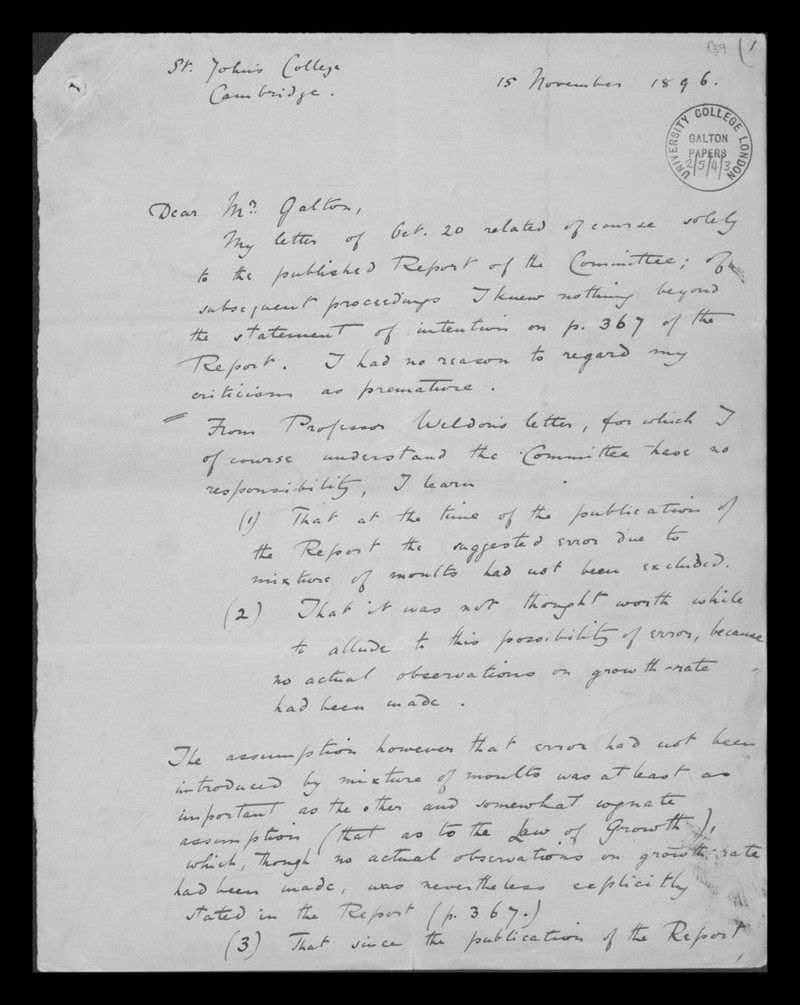 f39 (1
St. John's College
Cambridge.
15 November 1896.
UNIVERSITY COLLEGE LONDON
GALTON
PAPERS
2/5/4/3
Dear Mr. Galton,
My letter of Oct. 20 related of course solely
to the published Report of the Committee; of
subsequent proceedings I knew nothing beyond
the statement of intention on p. 367 of the
Report. I had no reason to regard my
criticism as premature.
From Professor Weldon's letter, for which I
of course understand the Committee have no
responsibility, I learn
(1) That at the time of the publication of
the Report the suggested error due to
mixture of moults had not been excluded.
(2) That it was not thought worth while
to allude to this possibility of error, because
no actual observations on growth-rate
had been made.
The assumption however that error had not been
introduced by mixture of moults was at least as
important as the other and somewhat cognate
assumption (that as to the Law of Growth),
which, though no actual observations on growth-rate
had been made, was nevertheless explicitly
stated in the Report (p. 367.)
(3) That since the publication of the Report,